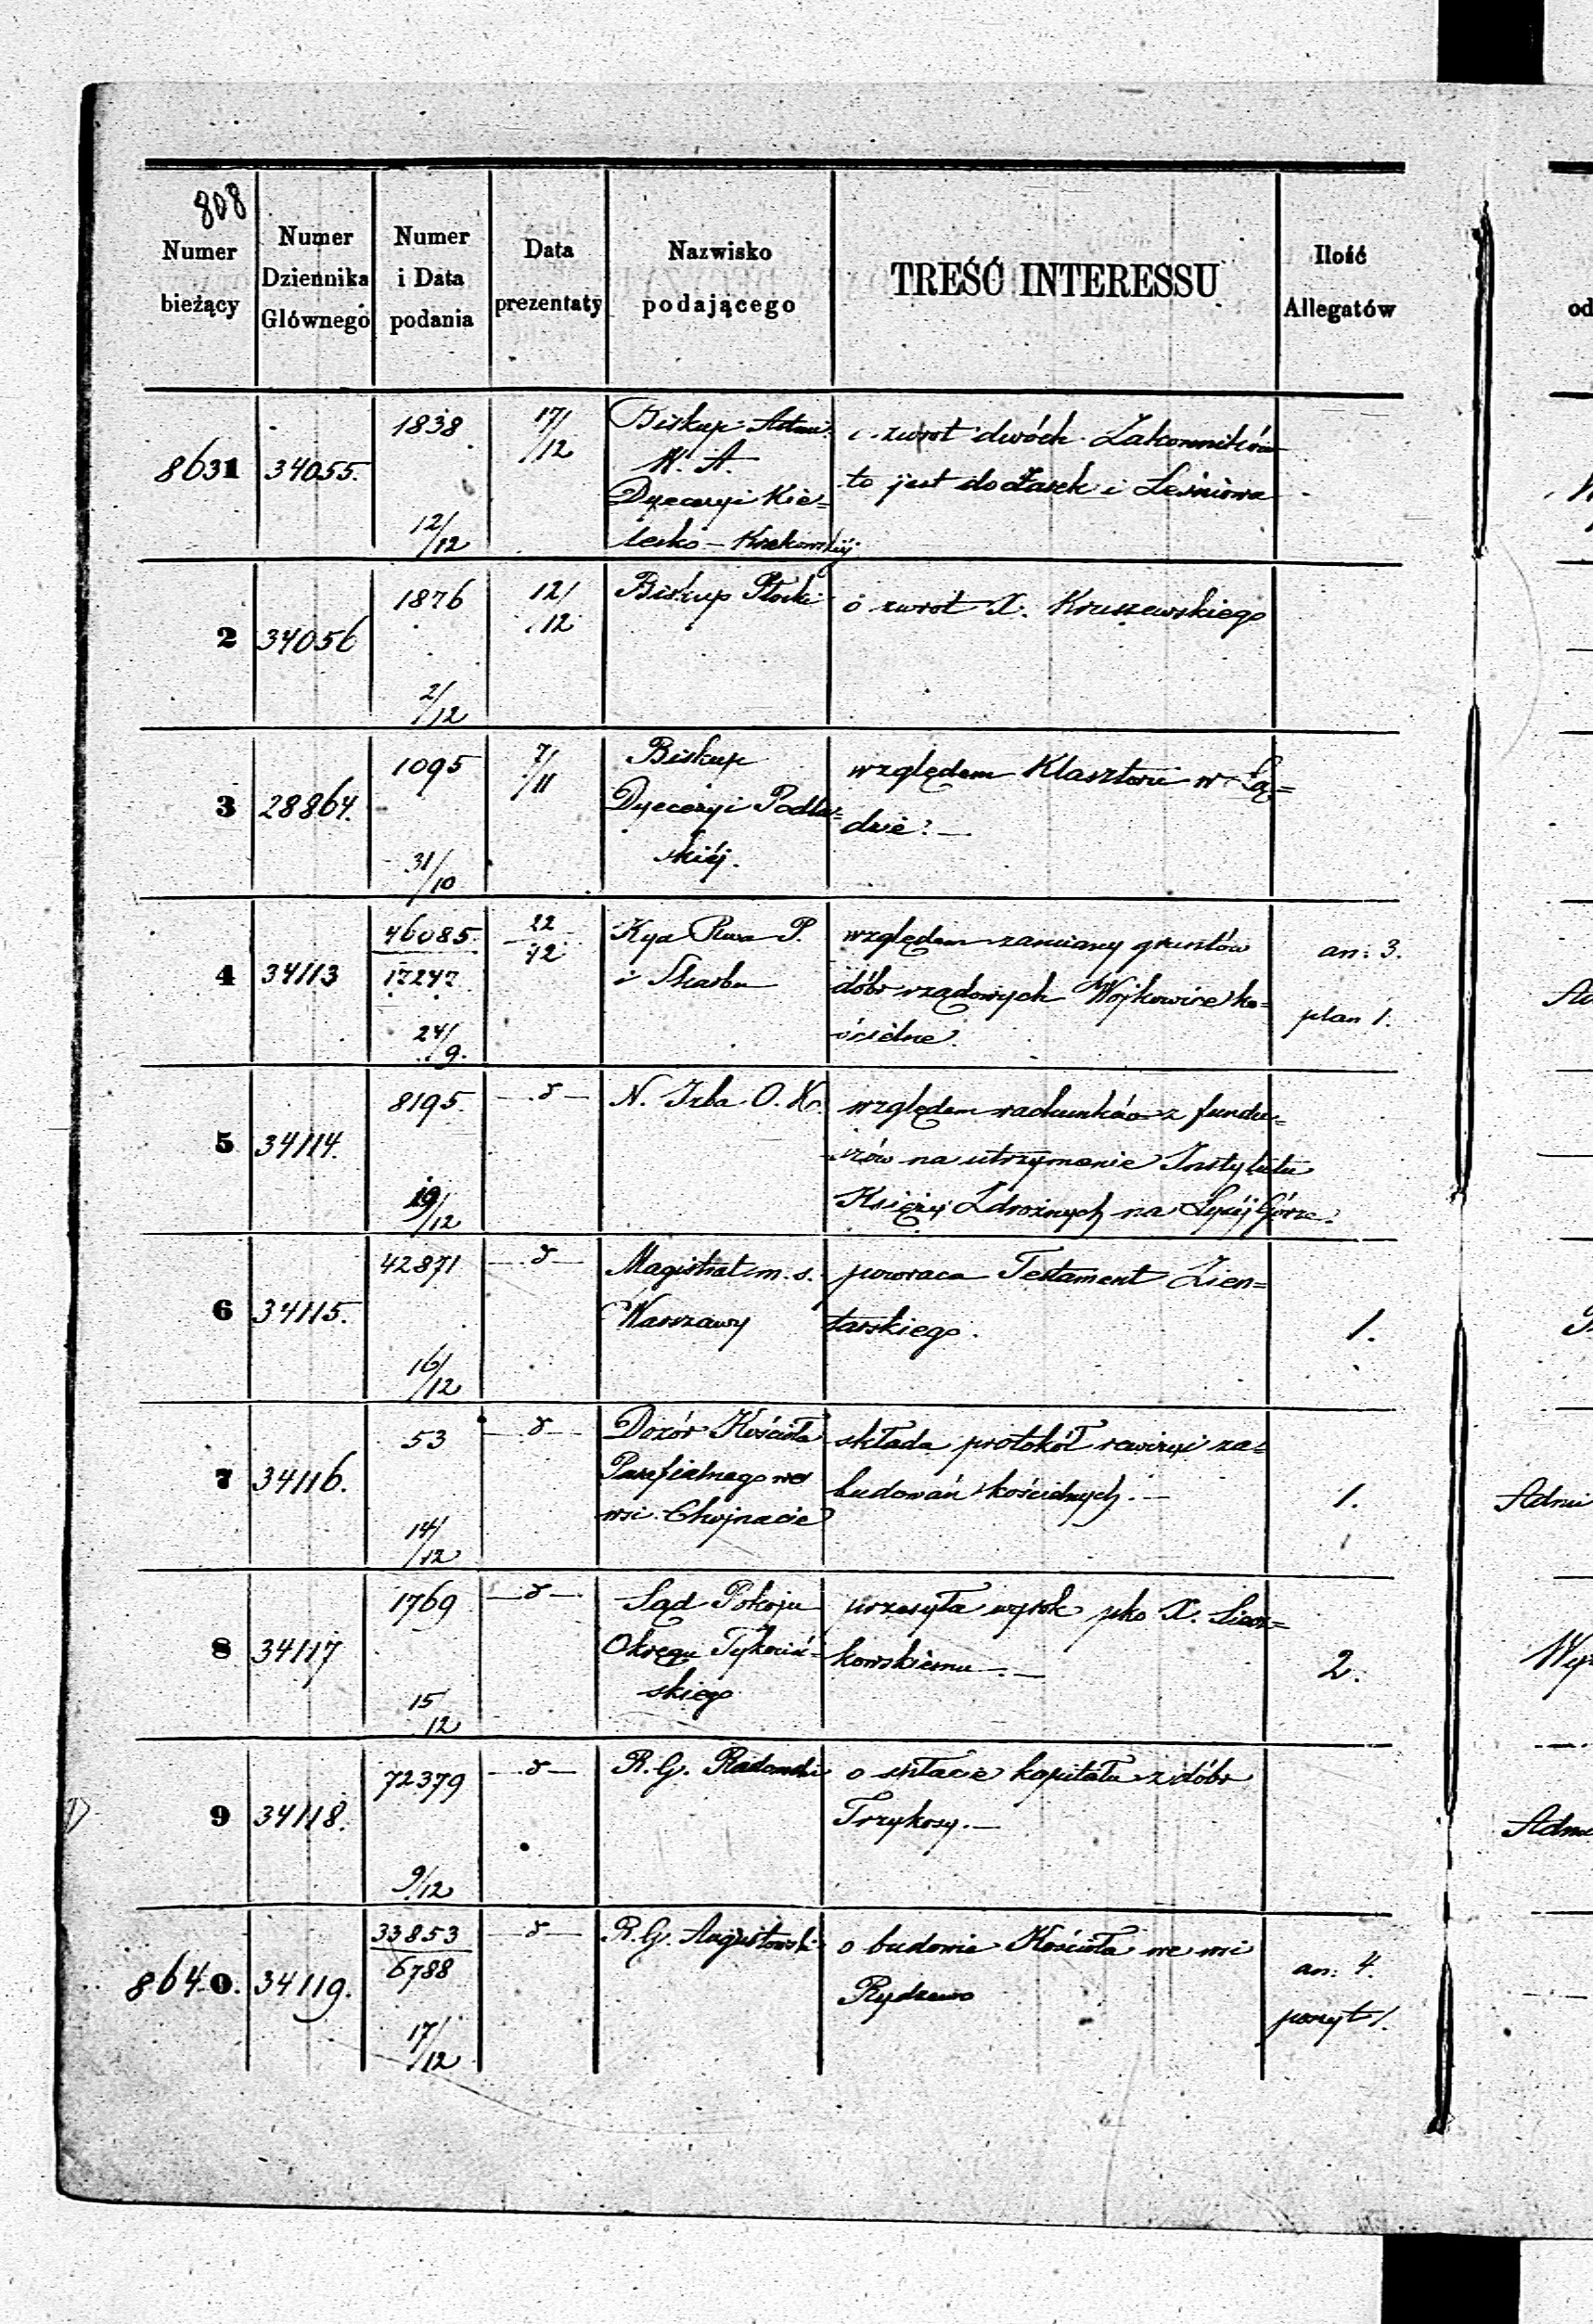 808
Numer bieżący
Numer Dziennika Głównego
Numer i Data podania
Data prezentaty
Nazwisko podającego
TREŚĆ INTERESSU
Ilość Allegatów
8631 34055. 1838 12/12 17/12
Biskup
K. A.
Dyecezyi Kie=
lecko-Krakowskiéj
o zwrot dwóch Zakonników
to jest do Łasek i Leśniowa
2 34056 1876 2/12 12/12
Biskup Płocki
o zwrot X. Kruszewskiego
3 28864. 1095 31/10 7/11
Biskup
Dyecezyi Podla=
skiéj.
względem Klasztoru w Lą=
dzie.
4 34113 46085 17247 24/9. 22/12
Kya Rwa P.
i Skarbu
względem zamiany gruntów
dóbr rządowych Wojkowice ko=
ścielne.
an: 3.
plan 1.
5 34114. 8195. 19/12 — d —
N. Izba O. K.
względem rachunków z fundu=
szów na utrzymanie Instytutu
Księży Zdrożnych na Łyséj Górze.
6 34115. 42871 16/12 — d —
Magistrat m. s.
Warszawy
powraca Testament Zien=
tarskiego.
1.
7 34116. 53 14/12 — d —
Dozór Kościoła
Parafialnego we
wsi Chojnacie
składa protokół rewizyi za=
budowań kościelnych. —
1.
8 34117 1769 15/12 — d —
Sąd Pokoju
Okręgu Tykociń=
skiego
przesyła wyrok pko X. Siecz=
kowskiemu. —
2.
9 34118. 72379 9/12 — d —
R. G. Radomski
o spłacie kapitału z dóbr
Trzykosy. —
8640. 34119. 33853 6788 17/12 — d —
R. G. Augustowski
o budowie Kościoła we wsi
Rydzewo
an: 4.
poszyt 1.